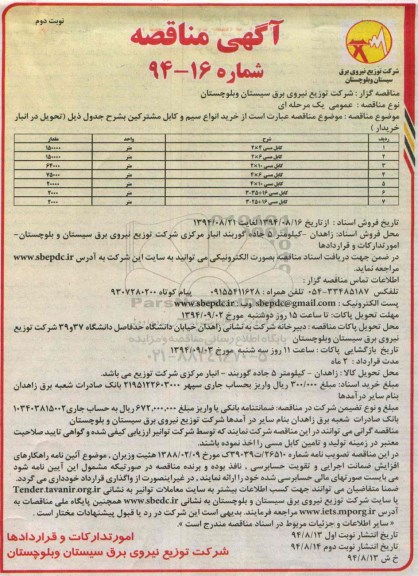 نوبت دوم
آگهی مناقصه
شماره ۱۶-۹۴
شرکت توزیع نیروی برق
سیستان وبلوچستان
مناقصه گزار : شرکت توزیع نیروی برق سیستان وبلوچستان
نوع مناقصه : عمومی یک مرحله ای
موضوع مناقصه : موضوع مناقصه عبارت است از خرید انواع سیم و کابل مشترکین بشرح جدول ذیل (تحویل در انبار
خریدار )
ردیف شرح واحد مقدار
۱ کابل مسی ۴×۲ متر ۱۵۰۰۰۰
۲ کابل مسی ۶×۲ متر ۱۵۰۰۰۰
۳ کابل مسی ۱۰×۲ متر ۶۴۰۰۰
۴ کابل مسی ۶×۴ متر ۷۵۰۰۰
۵ کابل مسی ۱۰×۴ متر ۲۰۰۰۰
۶ کابل مسی متر ۲۰۰۰
۷ کابل مسی متر ۲۰۰۰
تاریخ فروش اسناد : از تاریخ ۱۳۹۴/۰۸/۱۶ لغایت ۱۳۹۴/۰۸/۲۱
محل فروش اسناد: زاهدان -کیلومتر ۵ جاده گوربند انبار مرکزی شرکت توزیع نیروی برق سیستان و بلوچستان-
امورتدارکات و قراردادها
در ضمن جهت دریافت اسناد مناقصه بصورت الکترونیکی می توانید به سایت این شرکت به آدرس www.sbepdc.ir
مراجعه نماید.
اطلاعات تماس مناقصه گزار :
تلفکس ۳۳۴۸۵۱۸۷-۰۵۴ تلفن همراه : ۰۹۱۵۵۴۱۱۶۲۸ پیام کوتاه ۹۳۰۷۲۸۰۲۰۰
پست الکترونیک : sbepdc@gmail.com وب: www.sbepdc.ir
مهلت تحویل پاکات: تا ساعت ۱۵ روز دوشنبه مورخ ۱۳۹۴/۰۹/۰۲
محل تحویل پاکات مناقصه: دبیرخانه شرکت به نشانی زاهدان خیابان دانشگاه حدفاصل دانشگاه ۳۷و۳۹ شرکت توزیع
نیروی برق سیستان وبلوچستان
تاریخ بازگشایی پاکات : ساعت ۱۱ روز سه شنبه مورخ ۱۳۹۴/۰۹/۰۳
مدت قرارداد : ۲ ماه
محل تحویل کالا: زاهدان - کیلومتر ۵ جاده گوربند - انبار مرکزی شرکت توزیع می باشد.
مبلغ خرید اسناد: مبلغ ۲۰۰/۰۰۰ ریال واریز بحساب جاری سپهر ۲۱۹۵۱۲۲۶۰۳۰۰۰ بانک صادرات شعبه برق زاهدان
بنام سایر درآمدها
مبلغ و نوع تضیمن شرکت در مناقصه: ضمانتنامه بانکی یا واریز مبلغ ۶۷۲,۰۰۰,۰۰۰ ریال به حساب جاری ۱۰۳۴۰۳۸۱۵۰۰۲
بانک صادرات شعبه برق زاهدان بنام سایر در آمدها شرکت توزیع نیروی برق سیستان و بلوچستان
مناقصه گرانی می توانند در این مناقصه شرکت نمایند که توسط شرکت توانیر ارزیابی کیفی شده و گواهی تایید صلاحیت
معتبر در زمینه تولید و تامین کابل مسی را اخذ نموده باشند.
در این مناقصه تصویب نامه شماره ۲۶۵۱۰/ت۳۹۰۳۹ک مورخ ۱۳۸۸/۰۲/۰۹ هئیت وزیران , موضوع آئین نامه راهکارهای
افزایش ضمانت اجرایی و تقویت حسابرسی , نافذ بوده و برنده مناقصه در صورتیکه مشمول این آیین نامه شود
می بایست صورتهای مالی حسابرسی شده خود را ارائه نمایند , در غیر اینصورت از واگذاری قرارداد خودداری می گردد.
ضمنا متقاضیان می توانند جهت کسب اطلاعات بیشتر به سایت معاملات توانیر به نشانی Tender.tavanir.org.ir
یا سایت شرکت توزیع نیروی برق سیستان و بلوچستان به نشانی www.sbedc.ir همچنین پایگاه ملی مناقصات به
آدرس www.iets.mporg.ir مراجعه فرمایند. بدیهی است این شرکت در رد یا قبول پیشنهادات مختار است .
« سایر اطلاعات و جزئیات مربوط در اسناد مناقصه مندرج است »
تاریخ انتشار نوبت اول ۹۴/۸/۱۳
تاریخ انتشار نوبت دوم ۹۴/۸/۱۴
خ ش ۹۴/۸/۱۳
امورتدارکات و قراردادها
شرکت توزیع نیروی برق سیستان وبلوچستان